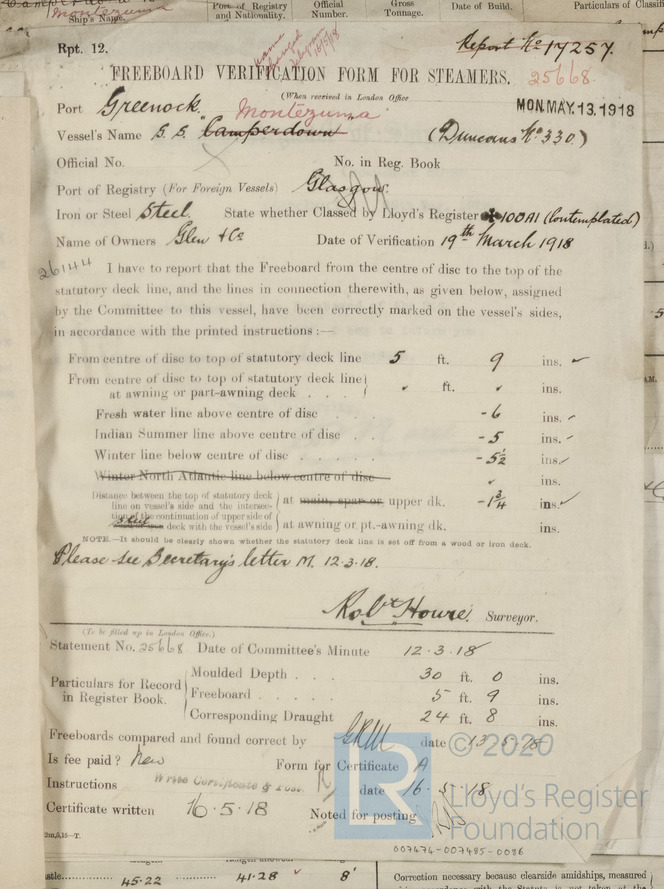 Montezuma
Ship's Name.
Port of Registry and Nationality.
Official Number.
Gross Tonnage.
Date of Build.
Particulars of Classifi
Rpt. 12.
Report No 17257.
name changed
FREEBOARD VERIFICATION FORM FOR STEAMERS.
25668.
(When received in London Office
MON. MAY. 13. 1918
Port Greenock.
"Montezuma
Vessel's Name S.S. Camperdown (Duncans No 330.)
Official No. No. in Reg. Book
Port of Registry (For Foreign Vessels) Glasgow.
Iron or Steel Steel. State whether Classed by Lloyd's Register ✠100A1 (Contemplated)
Name of Owners Glen & Co Date of Verification 19th March 1918
26144
I have to report that the Freeboard from the centre of disc to the top of the
statutory deck line, and the lines in connection therewith, as given below, assigned
by the Committee to this vessel, have been correctly marked on the vessel's sides,
in accordance with the printed instructions :—
From centre of disc to top of statutory deck line 5 ft. 9 ins. ✓
From centre of disc to top of statutory deck line
at awning or part-awning deck . . . ft. ins.
Fresh water line above centre of disc . . . - 6 ins.
Indian Summer line above centre of disc . . - 5 ins.
Winter line below centre of disc . . . . . - 5½ ins.
Winter North Atlantic line below centre of disc ins.
Distance between the top of statutory deck
line on vessel's side and the intersec-
tion of the continuation of upper side of
deck with the vessel's side
at main, spar or upper dk. - 1¾ ins. ✓
at awning or pt.-awning dk. ins.
NOTE.—It should be clearly shown whether the statutory deck line is set off from a wood or iron deck.
Please see Secretary's letter M. 12.3.18.
Robt Howre. Surveyor.
(To be filled up in London Office.)
Statement No. 25668 Date of Committee's Minute 12.3.18
Particulars for Record
in Register Book.
Moulded Depth . . . 30 ft. 0 ins.
Freeboard . . . . . 5 ft. 9 ins.
Corresponding Draught 24 ft. 8 ins.
Freeboards compared and found correct by GRM date 13.5.18
Is fee paid? New Form for Certificate A
Instructions Write Certificate & Post. date 16.5.18
Certificate written 16.5.18 Noted for posting
2m,5,15—T.
© 2020
LR
Lloyd's Register
Foundation
007474-007485-0086
45.22
41.28
8'
Correction necessary because clearside amidships, measured